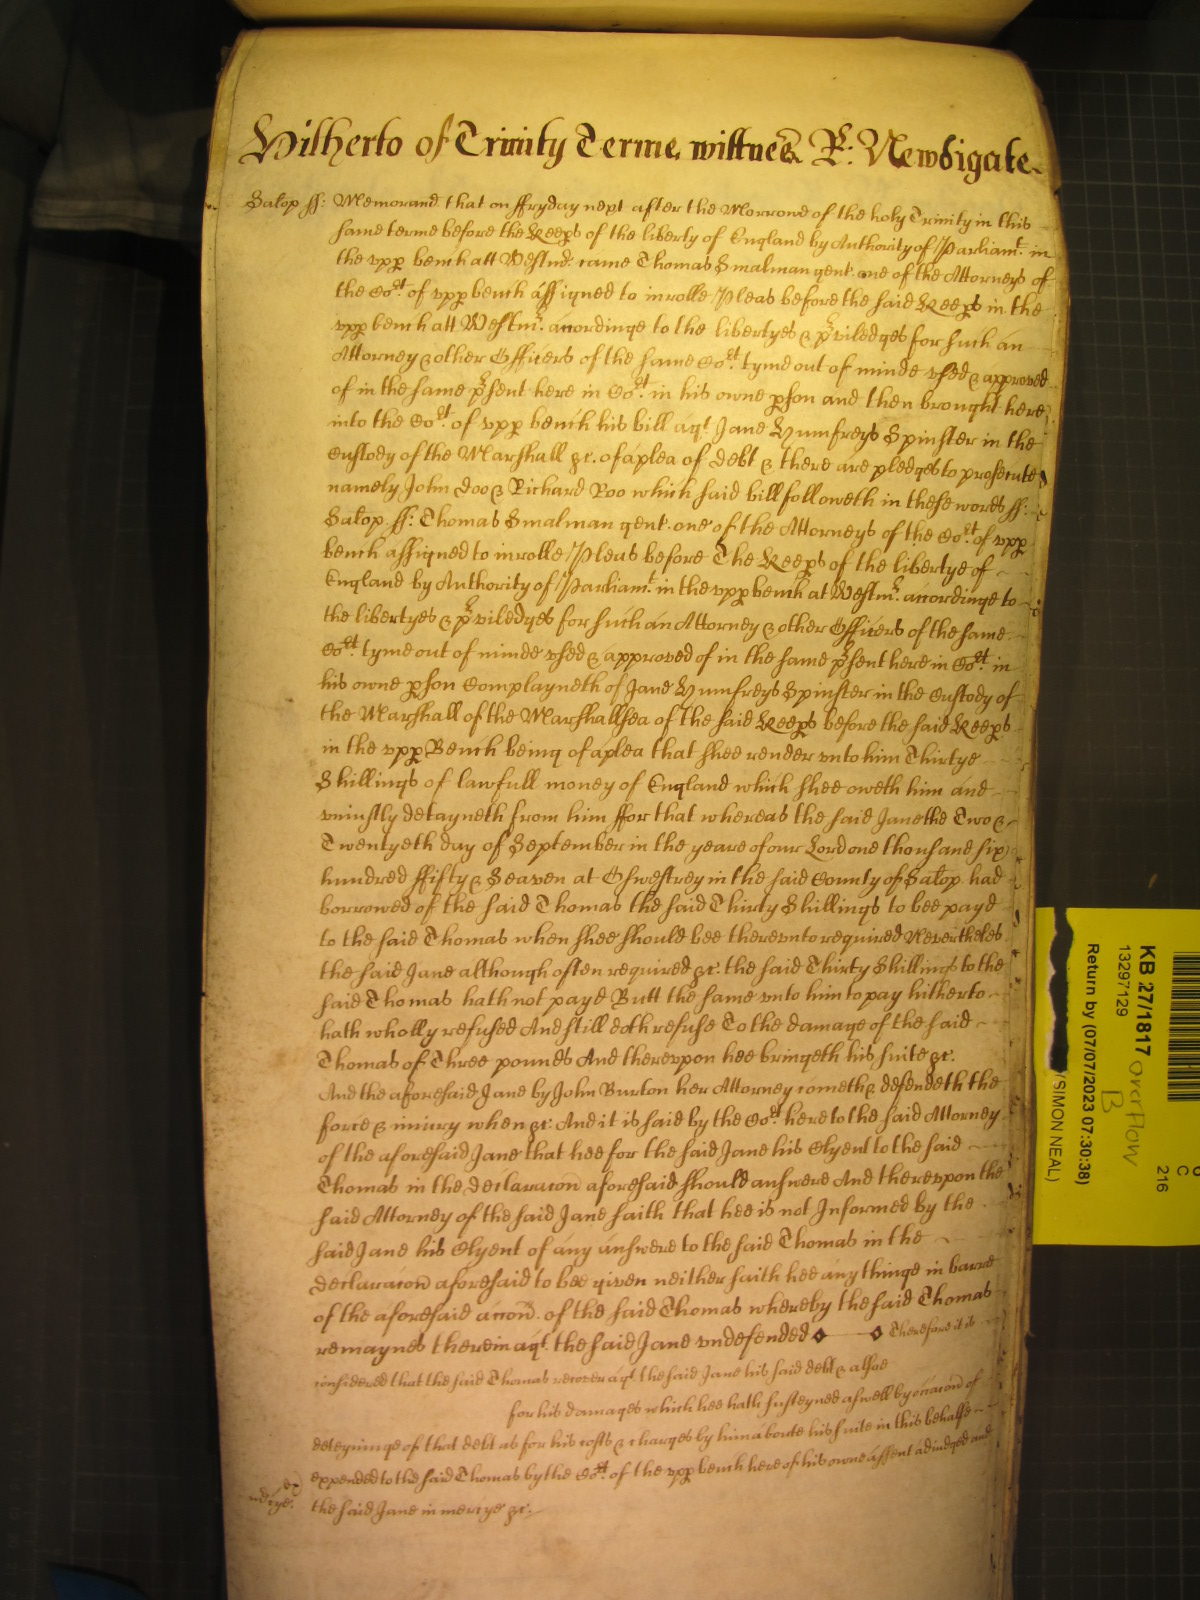 Hitherto of Trinity Terme wittnes R: Newdigate
Salop ss: Memorand that on ffryday next after the Morrowe of the holy Trinity in this
same terme before the Keeps of the liberty of England by Authority of Parliamt. in
the upp bench att Westmr. came Thomas Smalman gent. one of the Attorneys of
the Cort. of upp bench assigned to inrolle Pleas before the said Keeps in the
upp bench att Westmr. accordinge to the libertyes & pviledges for such an
Attorney & other Officers of the same Cort. tyme out of minde vsed & approved
of in the same psent here in Cort. in his owne pson and then brought here
into the Cort. of vpp bench his bill agt. Jane Humfreys Spinster in the
Custody of the Marshall &c. of a plea of debt & there are pledges to prosecute
namely John Doo & Richard Roo which said bill followeth in these words ss:
Salop ss: Thomas Smalman gent. one of the Attorneys of the Cort. of vpp
bench assigned to inrolle Pleas before The Keeps of the libertye of
England by Authority of Parliamt. in the vpp bench at Westmr. accordinge to
the libertyes & pviledges for such an Attorney & other Officers of the same
Cort. tyme out of minde vsed & approved of in the same psent here in Cort. in
his owne pson Complayneth of Jane Humfreys Spinster in the Custody of
the Marshall of the Marshallsea of the said Keeps before the said Keeps
in the vpp Bench being of a plea that shee render vnto him Thirtye
Shillings of lawfull money of England which shee oweth him and
vniustly detayneth from him ffor that whereas the said Jane the Two &
Twentyeth day of September in the yeare of our Lord one thousand six
hundred ffifty & Seaven at Oswestrey in the said County of Salop had
borrowed of the said Thomas the said Thirty Shillings to bee payd
to the said Thomas when shee should bee therevnto required Nevertheles
the said Jane although often required &c. the said Thirty Shillings to the
said Thomas hath not payd Butt the same vnto him to pay hitherto
hath wholly refused And still doth refuse To the damage of the said
Thomas of Three pounds And therevpon hee bringeth his suite &c.
And the aforesaid Jane by John Burton her Attorney cometh & defendeth the
force & iniury when &c. And it is said by the Cort. here to the said Attorney
of the aforesaid Jane that hee for the said Jane his Clyent to the said
Thomas in the declaracon aforesaid should answere And therevpon the
said Attorney of the said Jane saith that hee is not Informed by the
said Jane his Clyent of any answere to the said Thomas in the
declaracon aforesaid to bee given neither saith hee any thinge in barre
of the aforesaid accon. of the said Thomas whereby the said Thomas
remaynes therein agt. the said Jane vndefended Therefore it is
considered that the said Thomas recover agt. the said Jane his said debt & alsoe
for his damages which hee hath susteyned aswell by occacon of
deteyninge of that debt as for his costs & charges by him aboute his suite in this behalfe
expended to the said Thomas by the Cort. of the vpp bench here of his owne assent adiudged and
the said Jane in mercye &c.
mercye.
KB 27/1817 overflow
B
13297129
Return by (07/07/2023 07:30:38)
(SIMON NEAL)
C
216